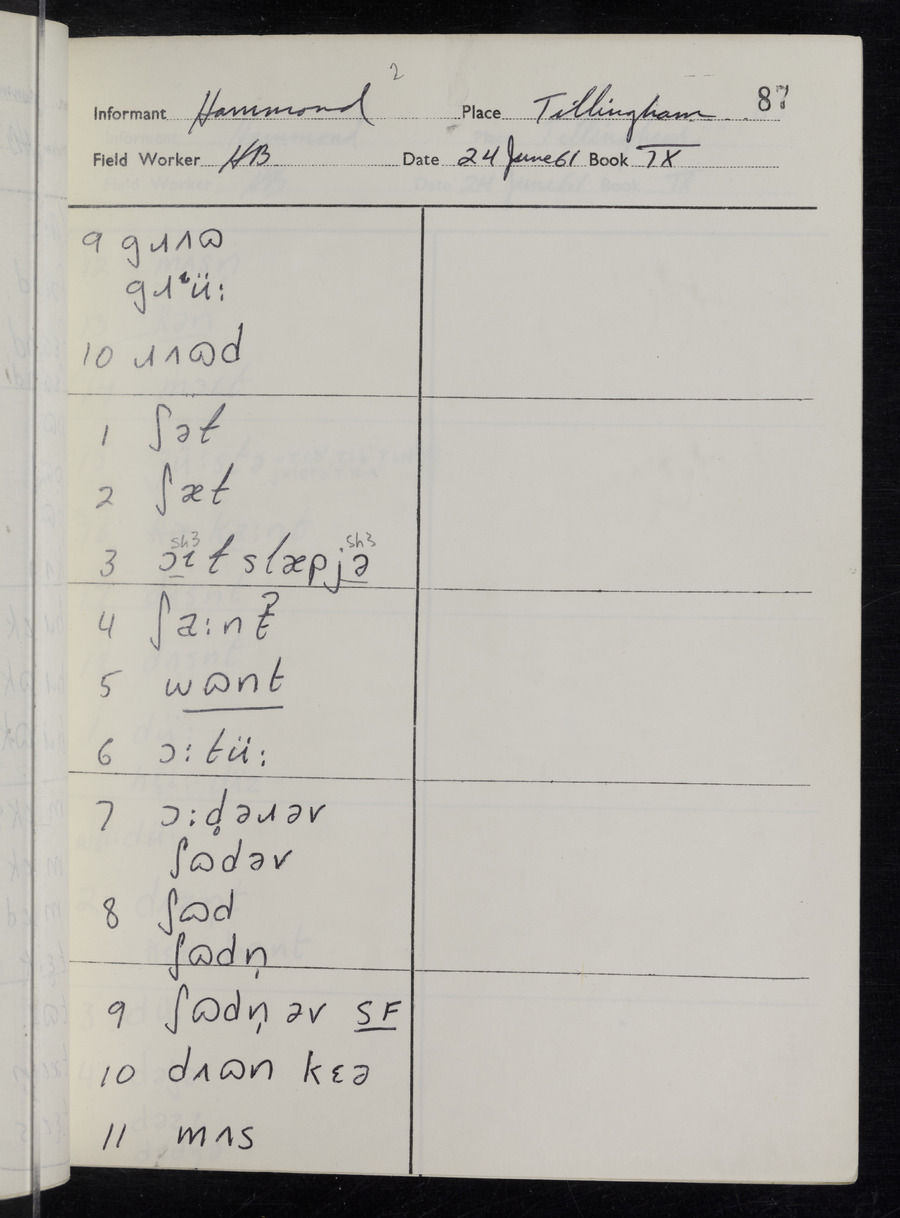 2
Informant Hammond Place Tillingham 87
Field Worker HB Date 24 June 61 Book IX
9 gɹʌɷ
gɹᶤü:
10 ɹʌɷd
1 ʃət
2 ʃæt
sh3 sh3
3 ɔɩt slæpjə
4 ʃa:nt̬ ?
5 wɷnt
6 ɔ:tü:
7 ɔ:d̥əɹəv
ʃɷdəv
8 ʃɷd
ʃɷdn̩
9 ʃɷdn̩ əv SF
10 dʌɷn kɛə
11 mʌs